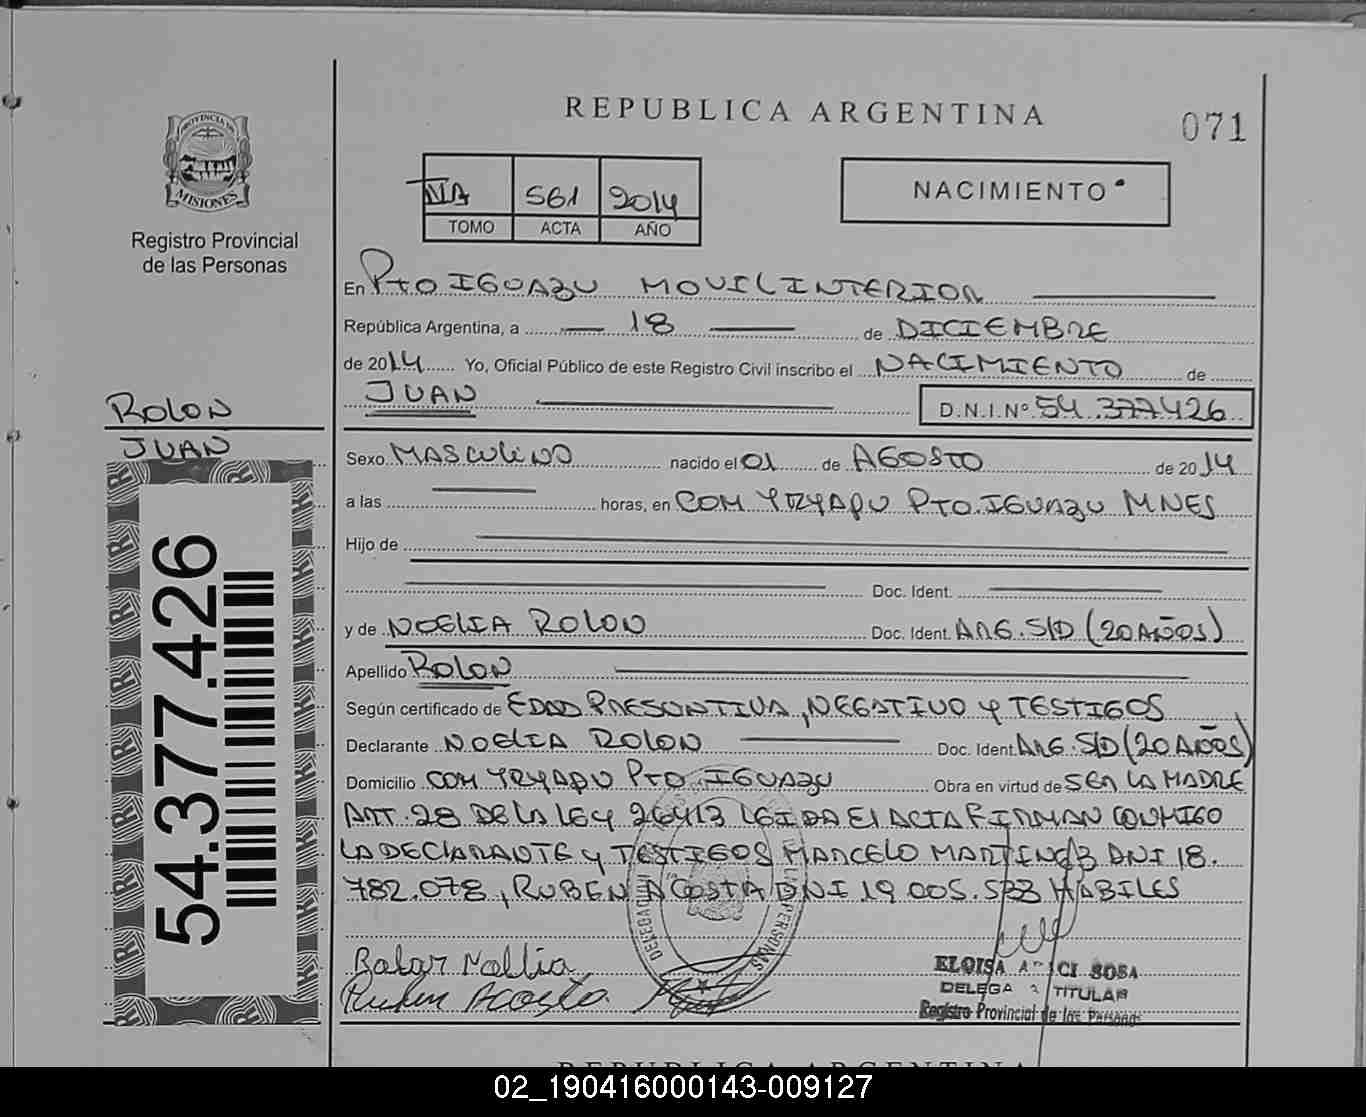 REPUBLICA ARGENTINA
071
PROVINCIA DE
MISIONES
Registro Provincial
de las Personas
561 2014
TOMO ACTA AÑO
NACIMIENTO
En Pto IGUAZU MOVIL INTERIOR
República Argentina, a 18 de DICIEMBRE
de 2014 Yo, Oficial Público de este Registro Civil inscribo el NACIMIENTO de
JUAN D.N.I.Nº 54.377.426
ROLON
JUAN
Sexo MASCULINO nacido el 01 de AGOSTO de 2014
a las horas, en COM YRYAPU PTO. IGUAZU MNES
Hijo de
Doc. Ident.
y de NOELIA ROLON Doc. Ident. ARG. S/D (20 AÑOS)
Apellido ROLON
Según certificado de EDAD PRESUNTIVA, NEGATIVO Y TESTIGOS
Declarante NOELIA ROLON Doc. Ident. ARG. S/D (20 AÑOS)
Domicilio COM YRYAPU PTO. IGUAZU Obra en virtud de SER LA MADRE
ART. 28 DE LA LEY 26413 LEIDA El ACTA FIRMAN CONMIGO
LA DECLARANTE Y TESTIGOS MARCELO MARTINEZ DNI 18.
782.078, RUBEN ACOSTA DNI 19.005.533 HABILES
Ruben Acosta
ELOISA SOSA
DELEGA TITULAR
Registro Provincial de las Personas
DELEGACION
PERSONAS
54.377.426
REPUBLICA ARGENTINA
02_190416000143-009127